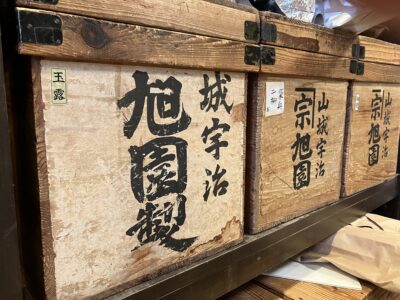 玉露
城宇治
旭園製
山城宇治
宗旭園
山城宇治
宗旭園